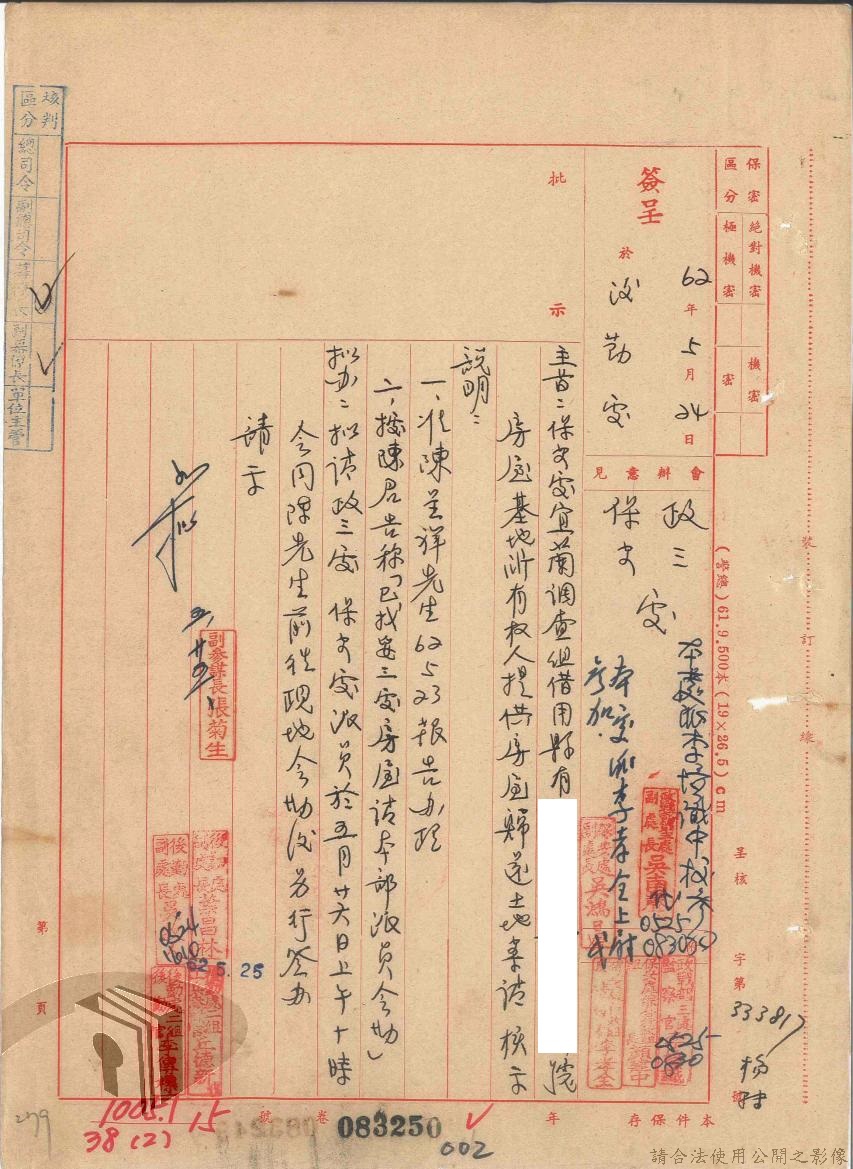 保密區分
絕對機密
極機密
機密
密
裝訂線
(普通)61.9.500本(19×26.5)cm
簽呈
62年5月24日
於後勤處
會辦意見
政三處
保安處
本處派李孝全上尉參加
批示
主旨：保安處宜蘭調查組借用縣有
號
房屋基地所有权人提供房屋歸還土地案請核示
說明：
一、准陳呈祥先生62 5 23報告办理
二、據陳君告称「已找妥三處房屋請本部派員会勘」
拟办：拟請政三處保安處派員於五月廿六日上午十時
会同陳先生前往現地会勘後另行签办
請示
如拟
副參謀長張菊生
後勤處
副處長
0524
1610
62.5.25
核判區分
總司令
副總司令
參謀長
副參謀長
單位主管
呈核
字第
33381
號
第頁
本件保存
年
卷
號
1005.1
15
38(2)
083250
002
279
請合法使用公開之影像